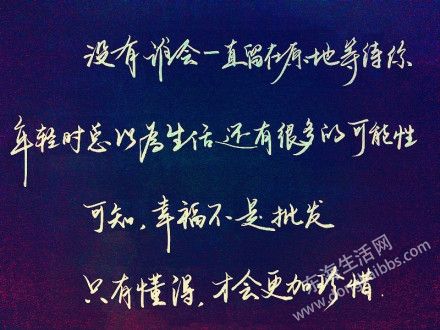 没有谁会一直留在原地等待你
年轻时总以为生活还有很多的可能性
可知,幸福不是批发
只有懂得,才会更加珍惜.
东海生活网
www.donghaibbs.com